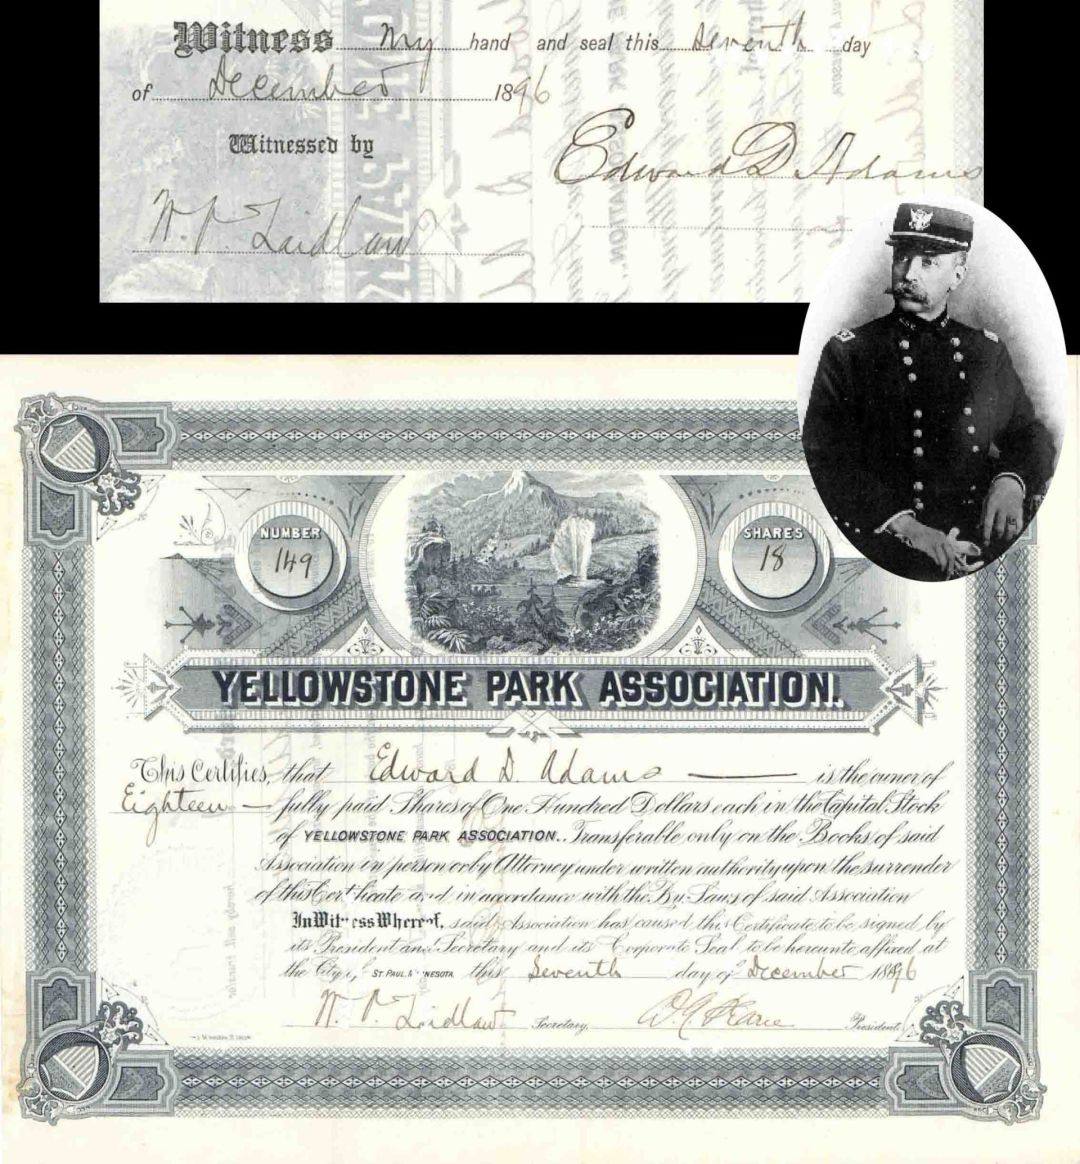 Witness My hand and seal this Seventh day
of December 1896
Witnessed by
Edward D. Adams
W. P. Laidlaw
NUMBER
149
SHARES
18
YELLOWSTONE PARK ASSOCIATION.
This Certifies, that Edward D. Adams is the owner of
Eighteen fully paid Shares of One Hundred Dollars each in the Capital Stock
of YELLOWSTONE PARK ASSOCIATION. Transferable only on the Books of said
Association in person or by Attorney under written authority upon the surrender
of this Certificate and in accordance with the By Laws of said Association
In Witness Whereof, said Association has caused this Certificate to be signed by
its President and Secretary and its Corporate Seal to be hereunto affixed at
the City of ST. PAUL, MINNESOTA this Seventh day of December 1896
W. P. Laidlaw Secretary, President